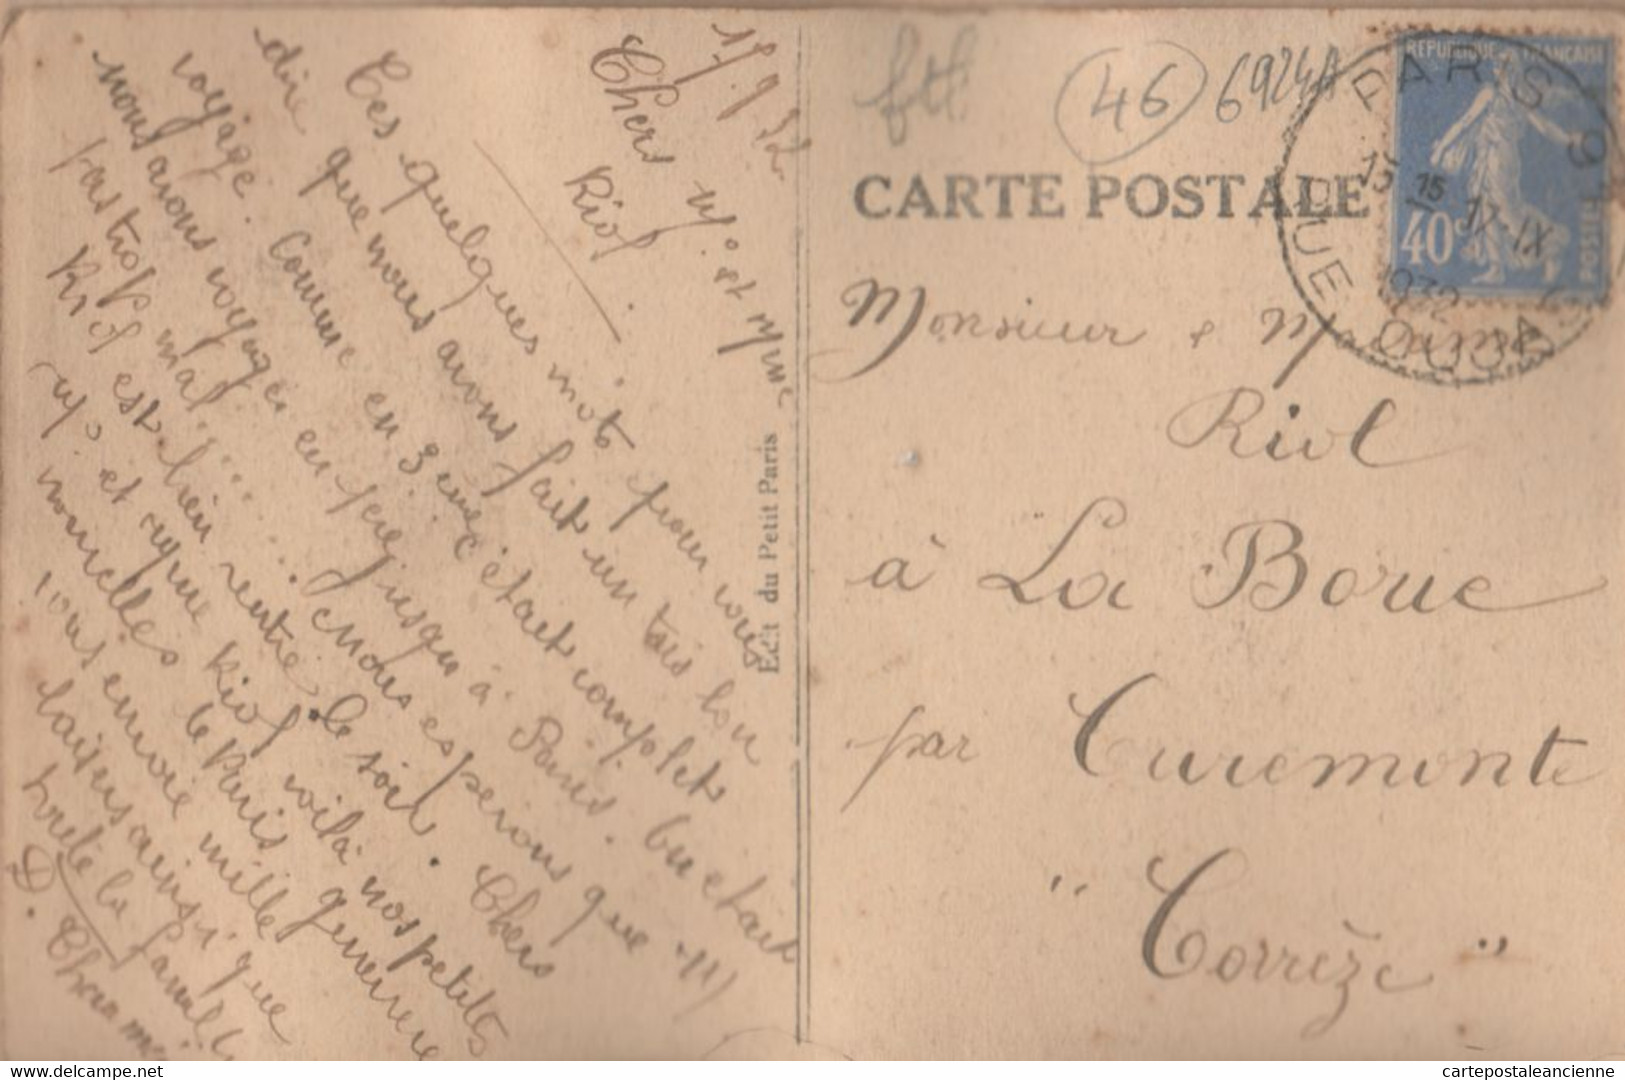 17.9.32
Chers Mr et Mme
Riol
Ces quelques mots pour vous
dire que nous avons fait un très bon
voyage. Comme en 3ème c'était complet
nous avons voyagé en 1ère jusqu'à Paris. On était
pas trop mal!!... Nous espérons que Mr
Riol est bien rentré le soir. Chers
Mr et Mme Riol voilà nos petits
nouvelles le Paris
vous envoie mille
baisers ainsi que
toute la famille
D.
Edit du Petit Paris
46
6924A
CARTE POSTALE
REPUBLIQUE FRANCAISE
POSTES
40c
PARIS 91
15 15
17 IX
1932
RUE
Monsieur & Madame
Riol
à La Borie
par Curemonte
"Corrèze"
delcampe.net
cartepostaleancienne